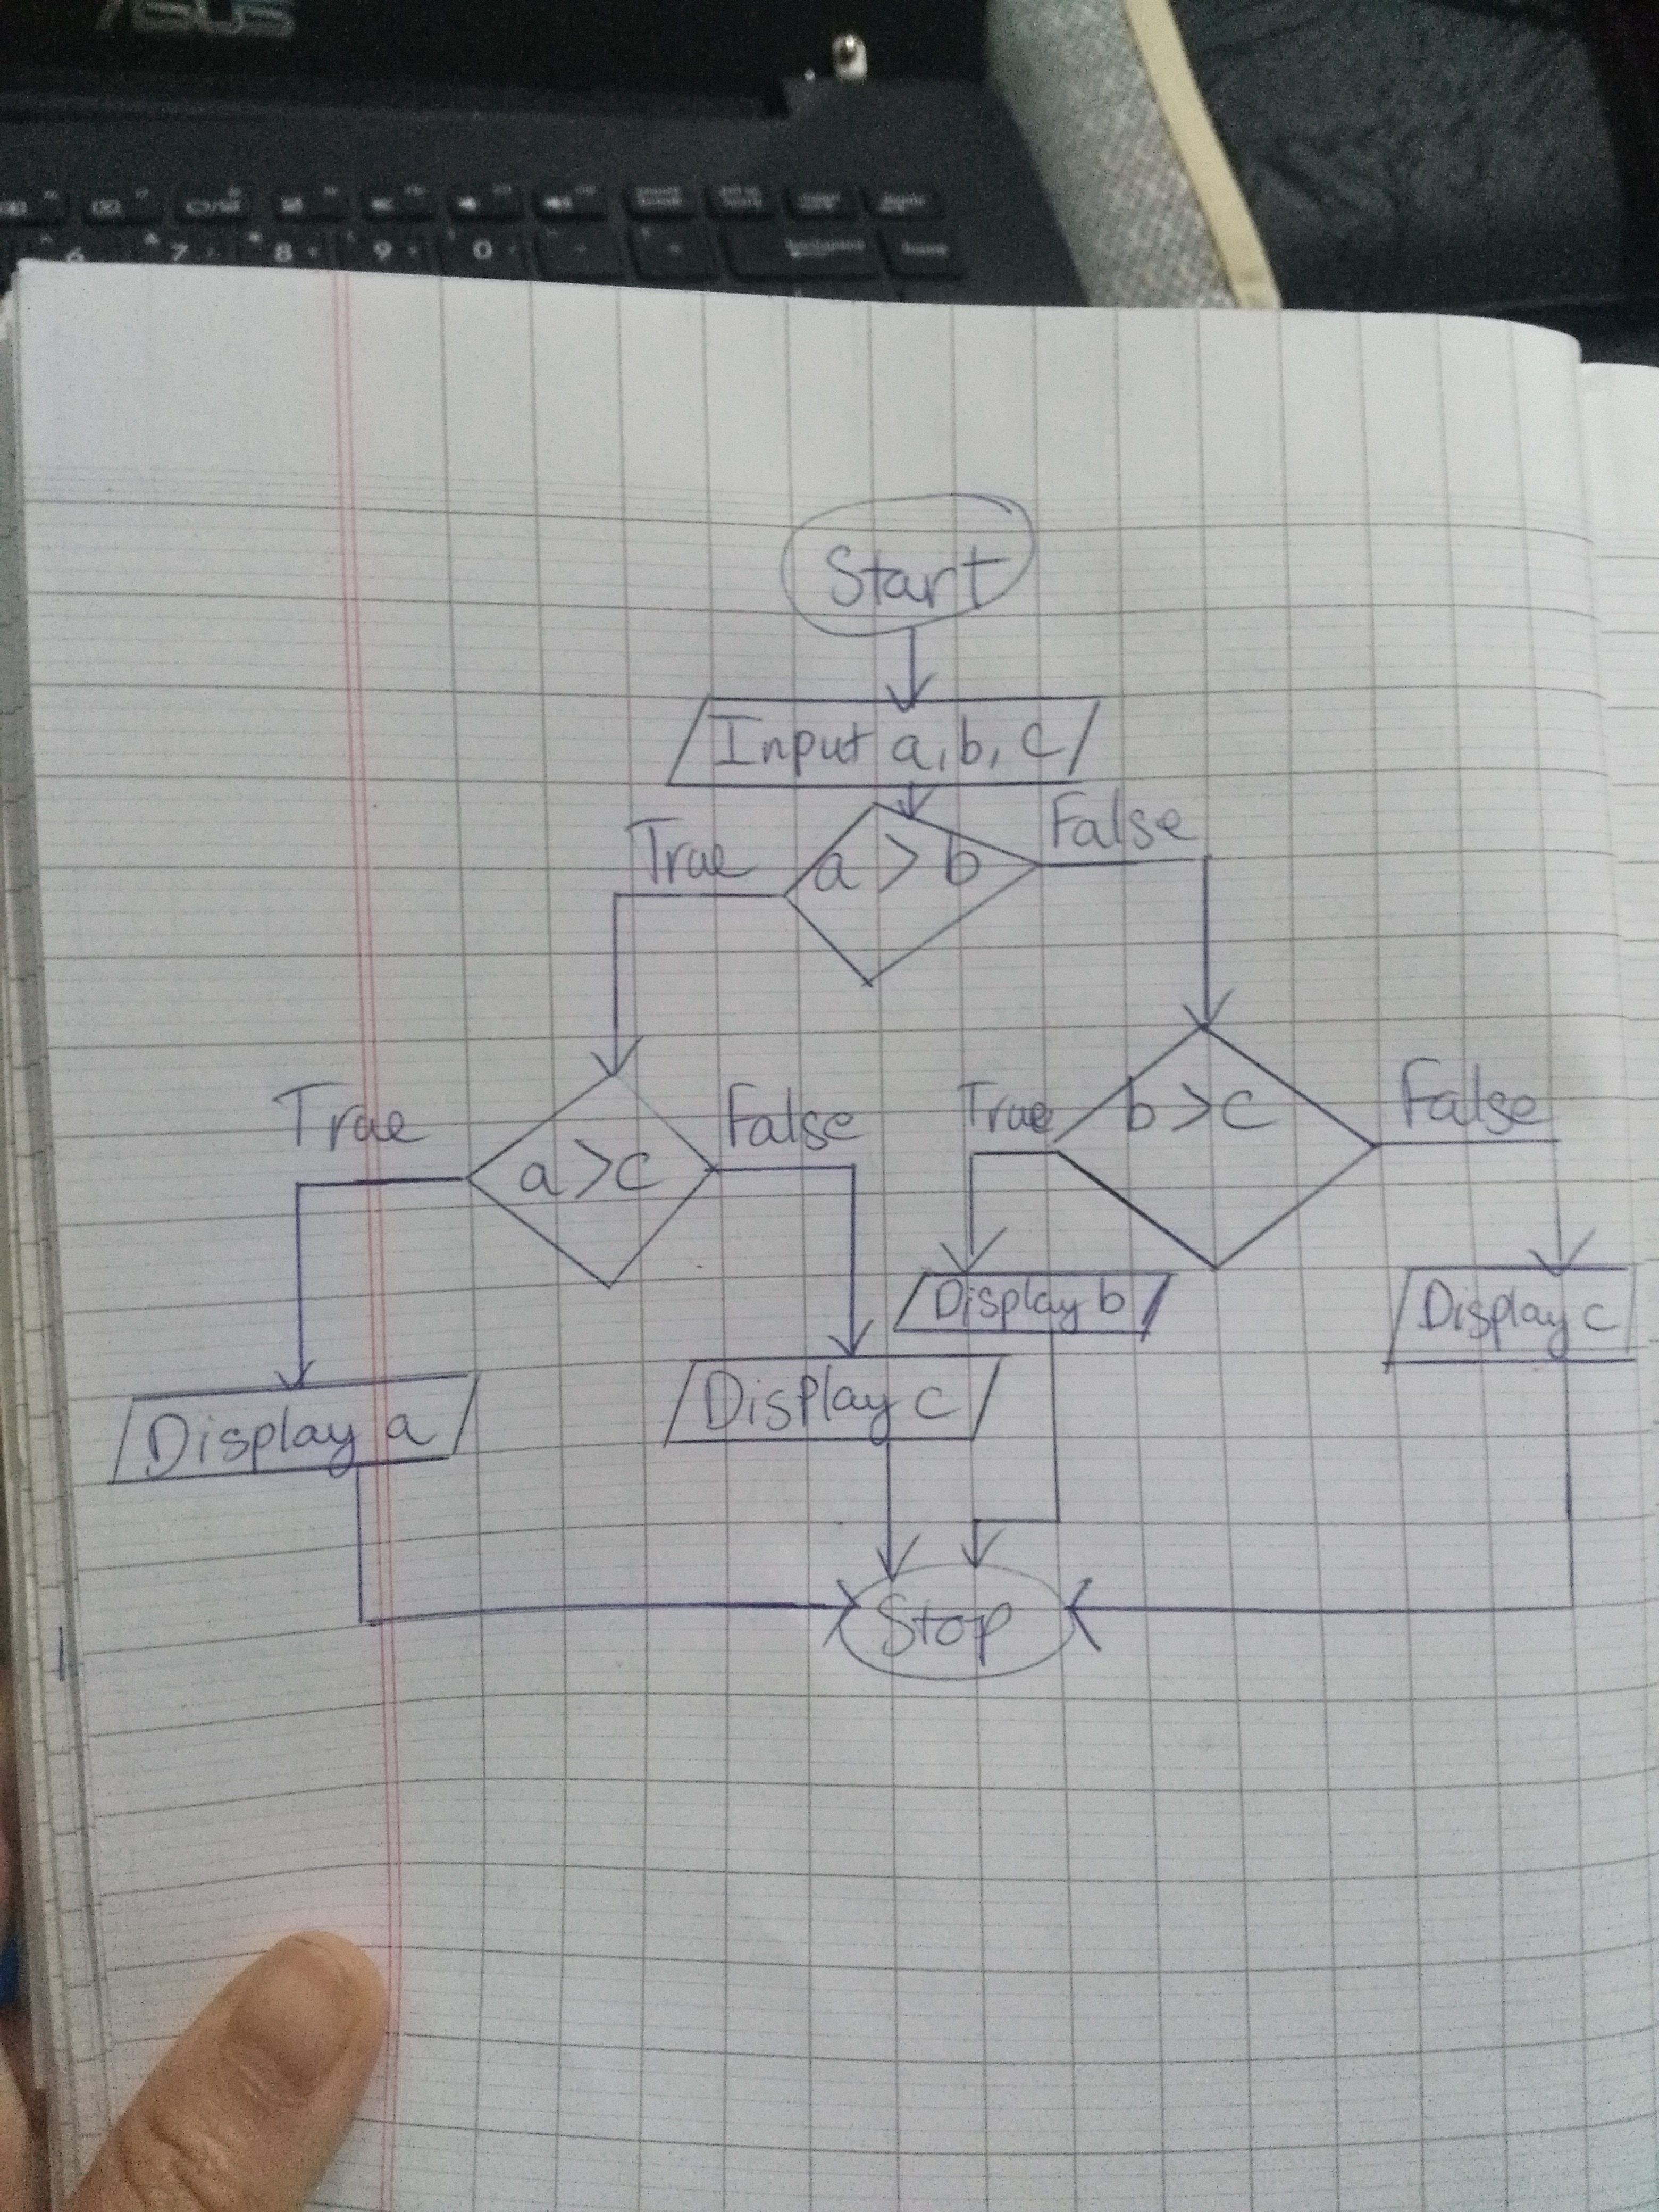 ASUS
6 7 8 9 0
home
Start
Input a, b, c
True a > b False
True a > c False
True b > c False
Display b
Display c
Display c
Display a
Stop